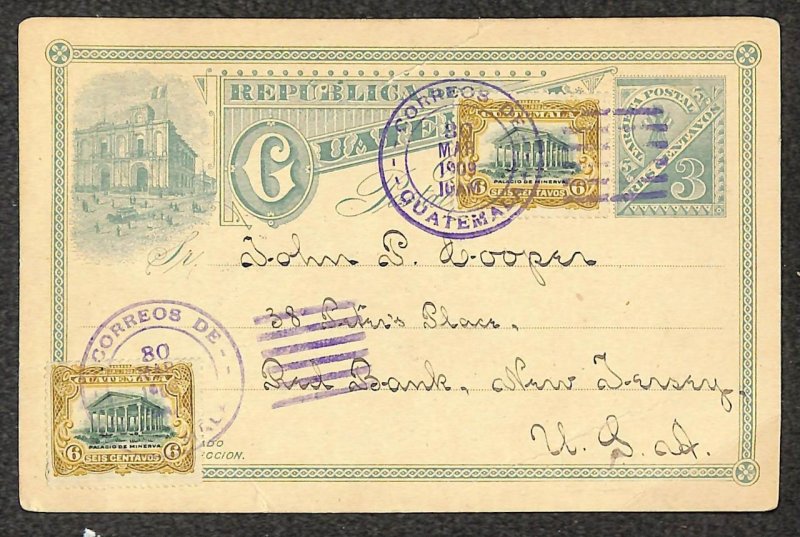 REPÚBLICA
GUATE
CORREOS DE
80
MAR
1909
10AM
GUATEMALA
GUATEMALA
PALACIO DE MINERVA
6 SEIS CENTAVOS 6
POSTAL
TRES CENTAVOS
3
Sr. John P. Cooper
38 Peter's Place,
Red Bank, New Jersey,
U. S. A.
CORREOS DE
80
GUATEMALA
PALACIO DE MINERVA
6 SEIS CENTAVOS 6
ADO
ECCION.